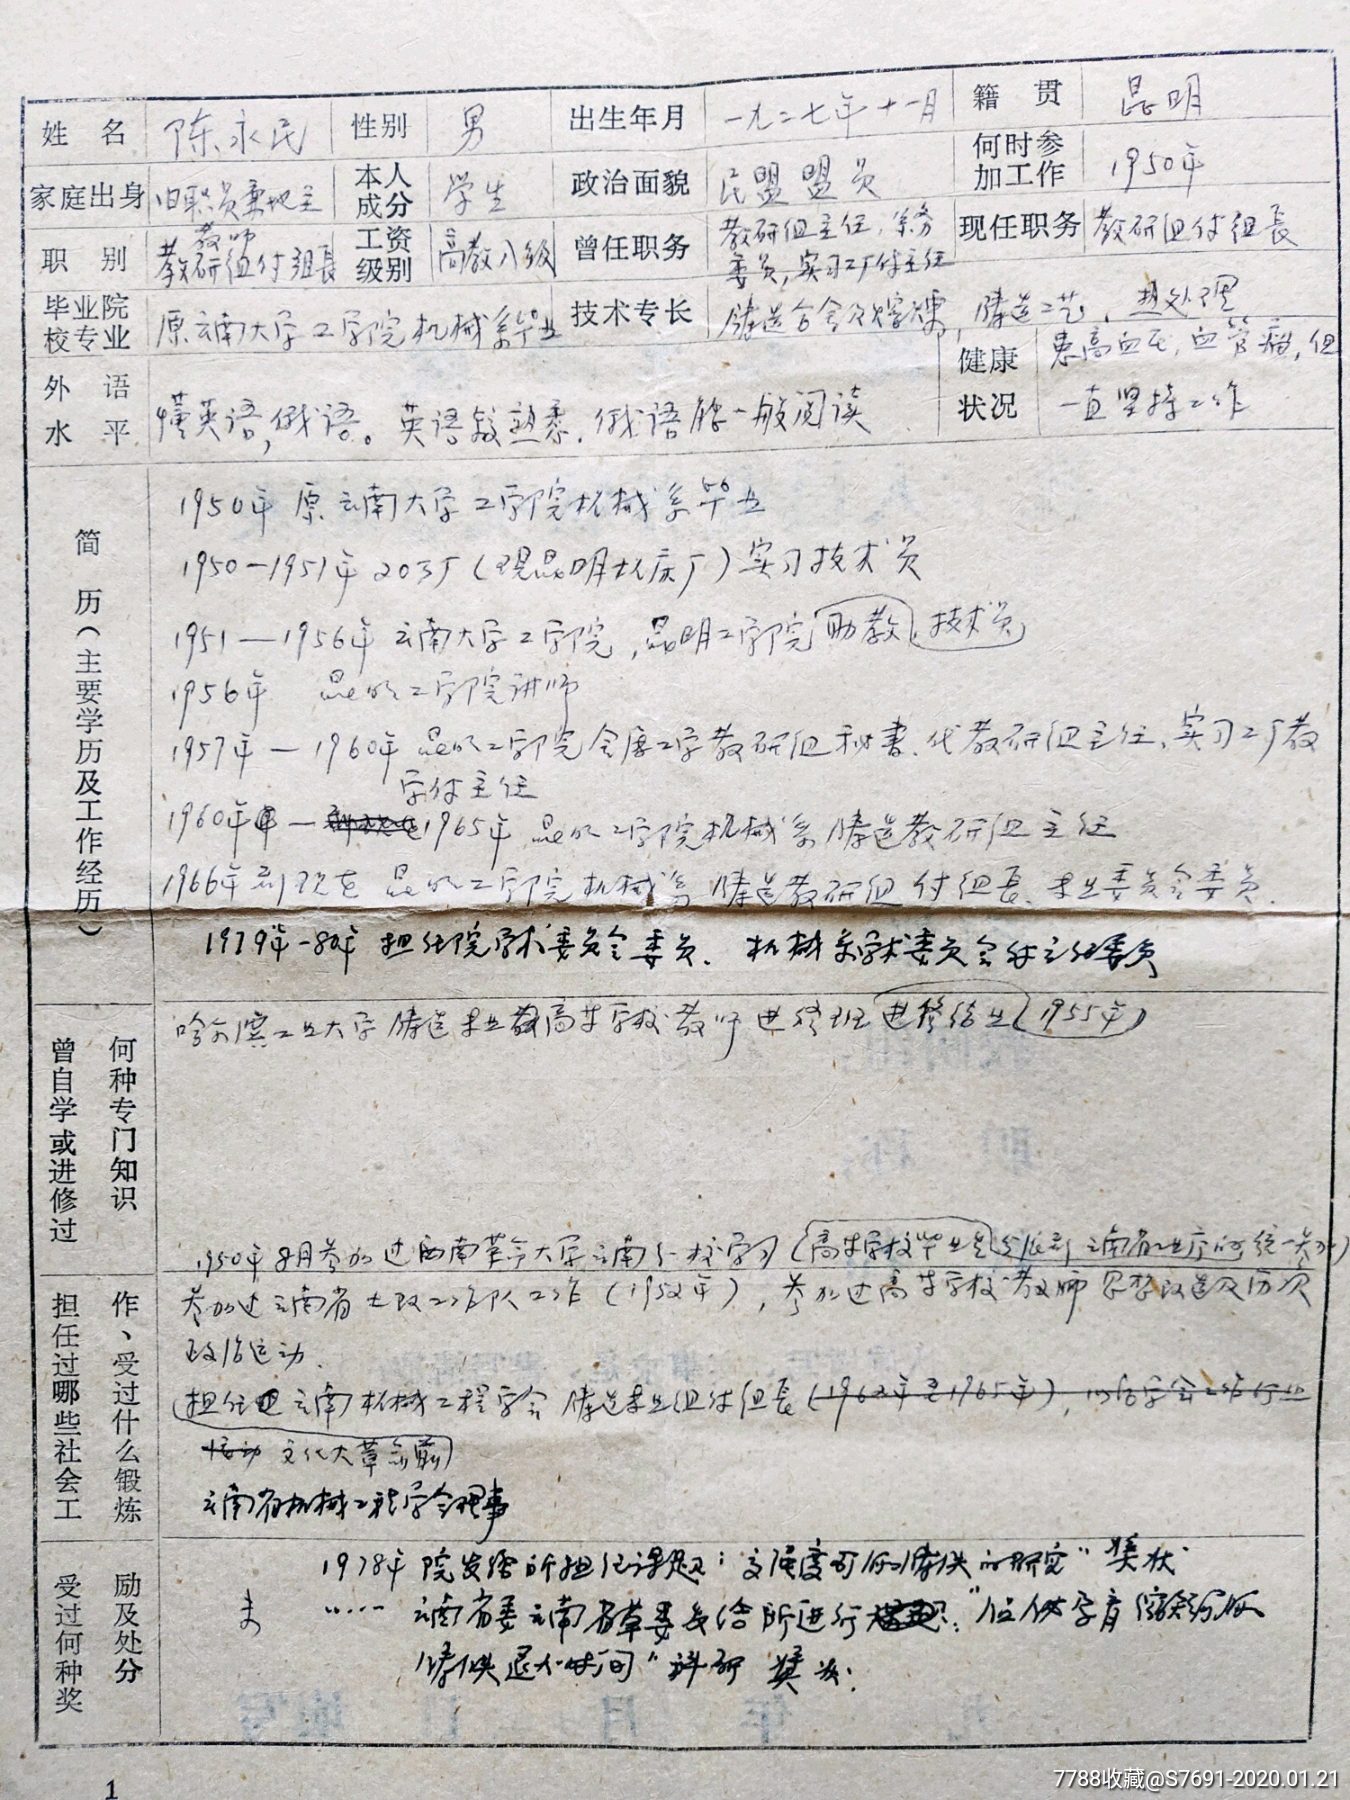 姓名 陈永民 性别 男 出生年月 一九二七年十一月 籍贯 昆明
家庭出身 旧职员兼地主 本人成分 学生 政治面貌 民盟盟员 何时参加工作 1950年
职别 教师 教研组付组长 工资级别 高教八级 曾任职务 教研组主任,系务委员,实习工厂付主任 现任职务 教研组付组长
毕业院校专业 原云南大学工学院机械系毕业 技术专长 铸造合金及熔炼,铸造工艺,热处理
外语水平 懂英语,俄语。英语较熟悉,俄语能一般阅读 健康状况 患高血压,血管瘤,但一直坚持工作
简历(主要学历及工作经历)
1950年 原云南大学工学院机械系毕业
1950—1951年 203厂(现昆明机床厂)实习技术员
1951—1956年 云南大学工学院,昆明工学院助教,技术员
1956年 昆明工学院讲师
1957年—1960年 昆明工学院金属工学教研组秘书、代教研组主任、实习工厂教
学付主任
1960年—1965年 昆明工学院机械系铸造教研组主任
1966年到现在 昆明工学院机械系铸造教研组付组长、专业委员会委员.
1979年-80年 担任院学术委员会委员、机械系学术委员会付主任委员
曾自学或进修过何种专门知识
哈尔滨工业大学铸造专业高等学校教师进修班进修结业(1955年)
1950年8月参加过西南革命大学云南分校学习(高等学校毕业生分配到云南省工业厅的统一参加)
担任过哪些社会工作、受过什么锻炼
参加过云南省土改工作队工作(1952年),参加过高等学校教师思想改造及历次
政治运动.
担任过云南机械工程学会铸造专业组付组长(1962年至1965年),
活动 文化大革命前
云南省机械工程学会理事
受过何种奖励及处分
1978年 院发给所担任课题:"高强度可锻铸铁的研究"奖状
" …… 云南省委云南省革委发给所进行:"
铸铁退火时间"科研奖状.
1
7788收藏@S7691-2020.01.21